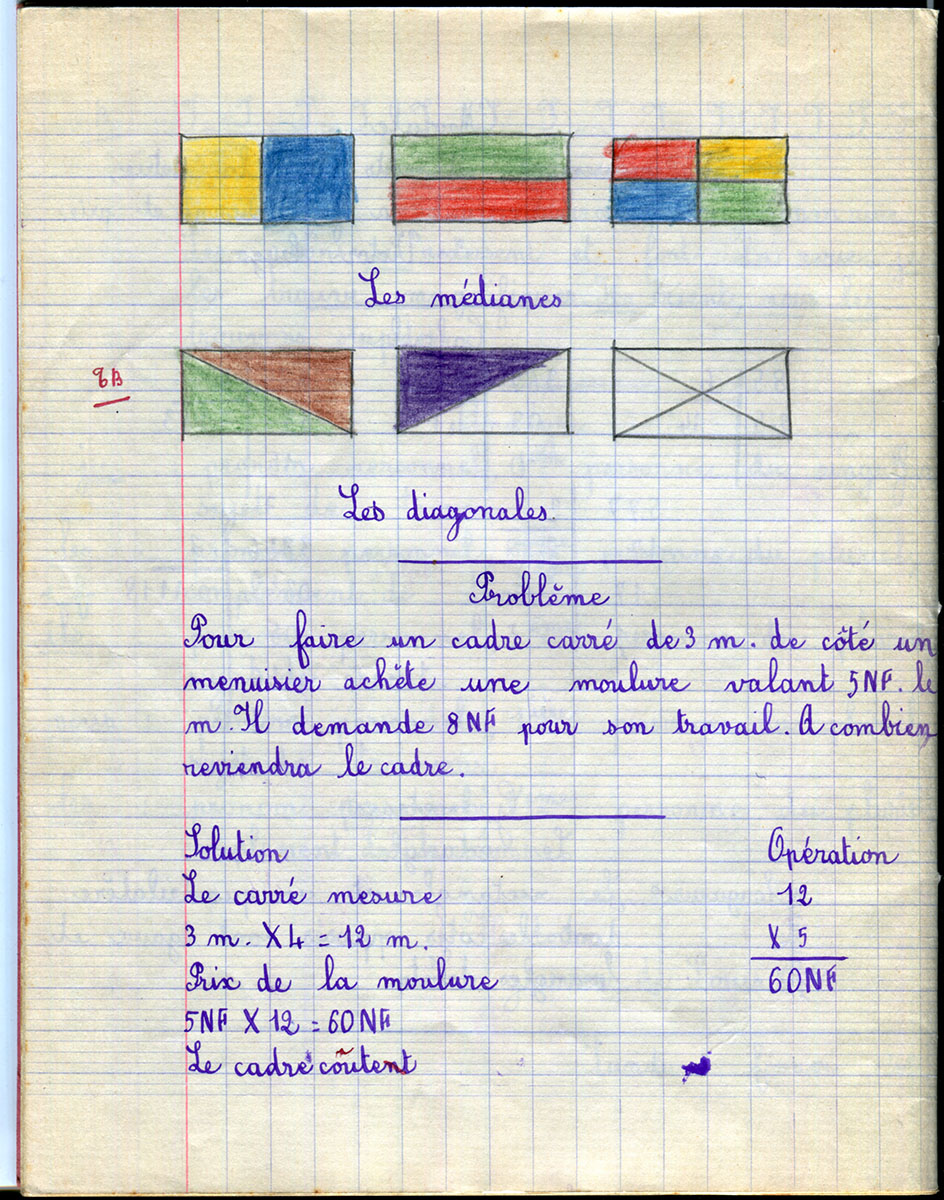 Les médianes
TB
Les diagonales.
Problème
Pour faire un cadre carré de 3 m. de côté un
menuisier achète une moulure valant 5NF. le
m. Il demande 8NF pour son travail. A combien
reviendra le cadre.
Solution
Opération
Le carré mesure
12
3 m. X 4 = 12 m.
X 5
Prix de la moulure
60NF
5NF X 12 = 60NF
Le cadre coûtent